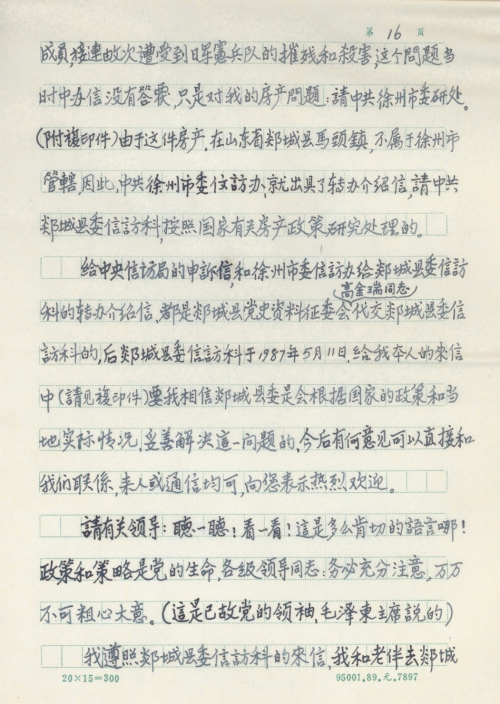 第 16 页
成員,接連故次遭受到日軍憲兵队的摧残和殺害,这个問題当
时中办信没有答覆,只是对我的房产問題:請中共徐州市委研处。
(附複印件)由于这件房产,在山东省郯城县馬頭鎮,不属于徐州市
管轄,因此,中共徐州市委信訪办,就出具了转办介紹信,請中共
郯城县委信訪科,按照国家有关房产政策研究处理的。
给中央信訪局的申訴信,和徐州市委信訪办给郯城县委信訪
高金瑞同志
科的转办介绍信,都是郯城县党史資料征委会代交郯城县委信
訪科的,后郯城县委信訪科于1987年5月11日,给我本人的來信
中(請见複印件)要我相信郯城县委是会根据国家的政策和当
地实际情况,妥善解决這一問題的,今后有何意見可以直接和
我們联係,来人或通信均可,向您表示热烈欢迎。
請有关领导:聽一聽!看一看!這是多么肯切的語言哪!
政策和策略是党的生命,各級领导同志:务必充分注意,万万
不可粗心大意。(這是已故党的领袖,毛澤東主席說的)
我遵照郯城县委信訪科的來信,我和老伴去郯城
20×15=300
95001.89.元.7897